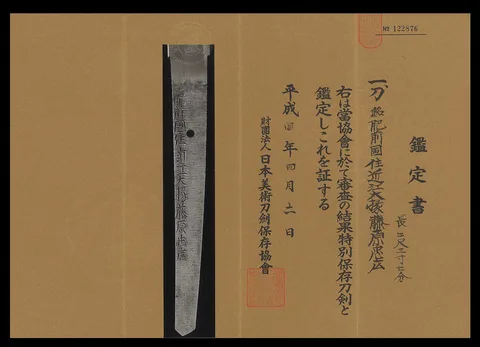 No 122876
鑑定書
一、刀 銘 肥前国住近江大掾藤原忠広
長 二尺二寸七分
右は當協會に於て審査の結果特別保存刀劍と
鑑定しこれを証する
平成四年四月十一日
財團法人 日本美術刀劍保存協會
肥前国住近江大掾藤原忠広